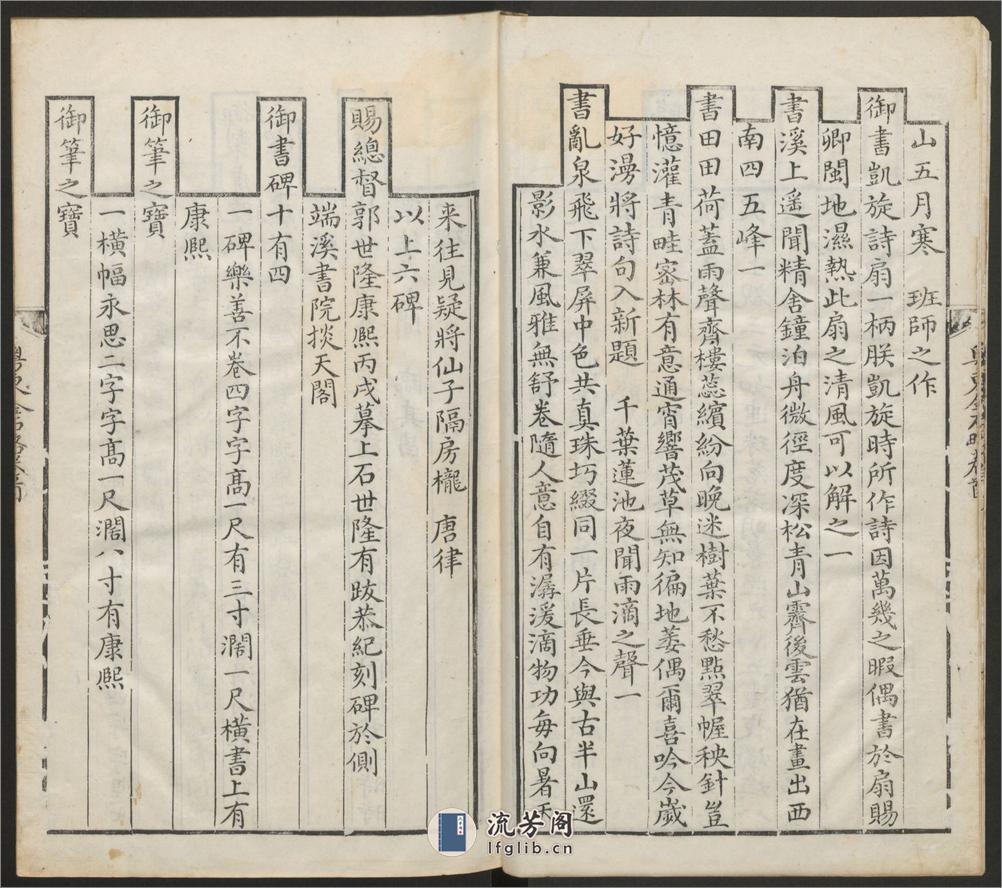 山五月寒　班師之作
御書凱旋詩扇一柄朕凱旋時所作詩因萬幾之暇偶書於扇賜
卿閩地濕熱此扇之清風可以解之一
書溪上遥聞精舍鐘泊舟微徑度深松青山霽後雲猶在畫出西
南四五峰一
書田田荷蓋雨聲齊樓蕊繽紛向晚迷樹葉不愁點翠幄秧針豈
憶灌青畦宻林有意通宵響茂草無知徧地萋偶爾喜吟今歲
好漫將詩句入新題　千葉蓮池夜聞雨滴之聲一
書亂泉飛下翠屏中色共真珠巧綴同一片長垂今與古半山還
影水兼風雅無舒卷隨人意自有潺湲滴物功每向暑天
来往見疑將仙子隔房櫳　唐律
以上六碑
賜總督郭世隆康熙丙戌摹上石世隆有跋恭紀刻碑於側
端溪書院掞天閣
御書碑十有四
一碑樂善不卷四字字髙一尺有三寸濶一尺橫書上有
康熙
御筆之寶
一橫幅永思二字字髙一尺濶八寸有康熙
御筆之寶
流芳阁
lfglib.cn